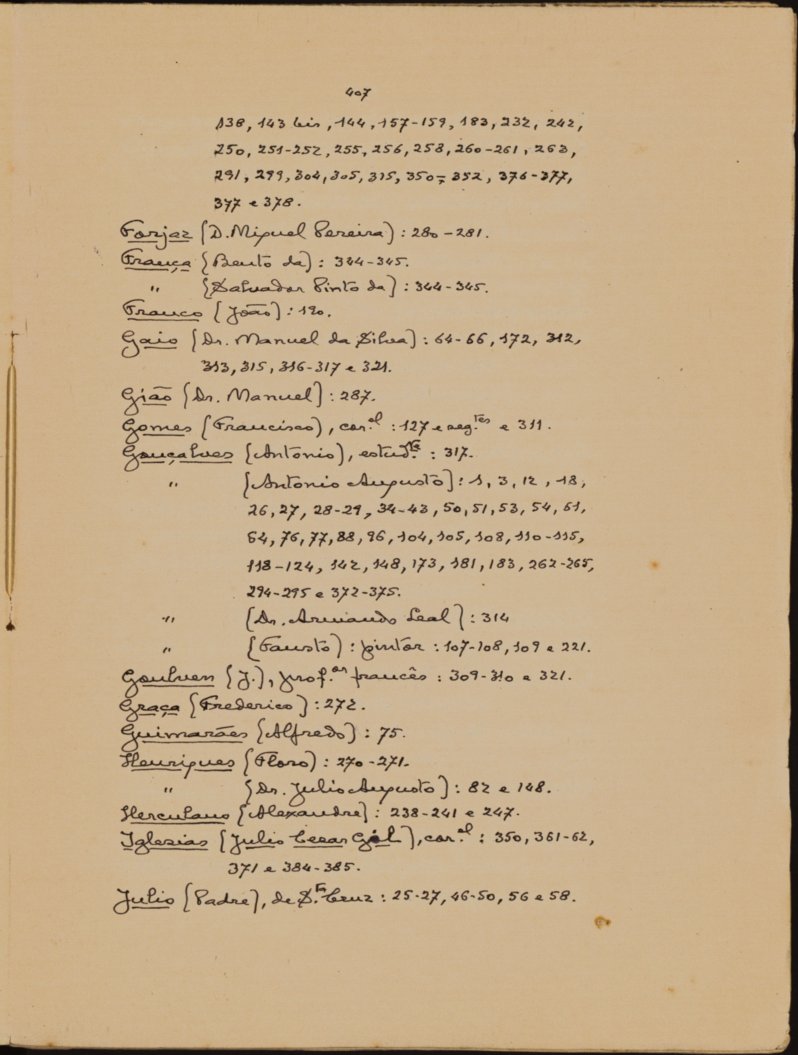 407
138, 143 bis, 144, 157-159, 183, 232, 242,
250, 251-252, 255, 256, 258, 260-261, 263,
291, 299, 304, 305, 315, 350-352, 376-377,
377 e 378.
Forjaz (D. Miguel Pereira): 280-281.
França (Bento da): 344-345.
" (Salvador Pinto da): 344-345.
Franco (João): 190.
Gaio (Dr. Manuel da Silva): 64-66, 172, 312,
313, 315, 316-317 e 321.
Gião (Dr. Manuel): 287.
Gomes (Francisco), cor.el: 127 e seg.tes e 311.
Gonçalves (Antonio), estud.te: 317.
" (Antonio Augusto): 1, 3, 12, 18,
26, 27, 28-29, 34-43, 50, 51, 53, 54, 61,
64, 76, 77, 88, 96, 104, 105, 108, 110-115,
118-124, 142, 148, 173, 181, 183, 262-265,
294-295 e 372-375.
" (Dr. Armando Leal): 314
" (Fausto): pintor: 107-108, 109 e 221.
Goulven (J.), prof.or francês: 309-310 e 321.
Graça (Frederico): 272.
Guimarães (Alfredo): 75.
Henriques (Floro): 270-271.
" (Dr. Julio Augusto): 82 e 148.
Herculano (Alexandre): 238-241 e 247.
Iglezias (Julio Cesar Gil), cor.el: 350, 361-62,
371 e 384-385.
Julio (Padre), de S.ta Cruz: 25-27, 46-50, 56 e 58.